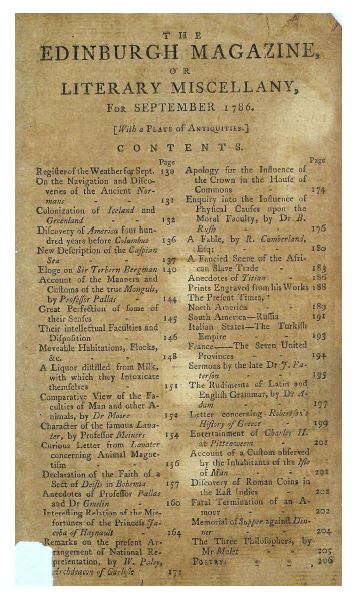 THE
EDINBURGH MAGAZINE,
OR
LITERARY MISCELLANY,
FOR SEPTEMBER 1786.
[With a PLATE of ANTIQUITIES.]
CONTENTS.
Page
Register of the Weather for Sept. 130
On the Navigation and Discoveries
of the Ancient Normans
- - 131
Colonization of Iceland and
Greenland - - 132
Discovery of America four hundred
years before Columbus 136
New Description of the Caspian
Sea - - 137
Eloge on Sir Torbern Bergman 140
Account of the Manners and
Customs of the true Monguls,
by Professor Pallas - 144
Great Perfection of some of
their Senses - 145
Their intellectual Faculties and
Disposition - 146
Moveable Habitations, Flocks,
&c. - - 148
A Liquor distilled from Milk,
with which they Intoxicate
themselves - 151
Comparative View of the Faculties
of Man and other Animals,
by Dr Moore - 152
Character of the famous Lavater,
by Professor Meiners 154
Curious Letter from Lavater
concerning Animal Magnetism
- - 156
Declaration of the Faith of a
Sect of Deists in Bohemia 157
Anecdotes of Professor Pallas
and Dr Gmelin - 160
Interesting Relation of the Misfortunes
of the Princess Jacoba
of Haynault - 164
Remarks on the present Arrangement
of National Representation,
by W. Paley,
Archdeacon of Carlisle 171
Page
Apology for the Influence of
the Crown in the House of
Commons - - 174
Enquiry into the Influence of
Physical Causes upon the
Moral Faculty, by Dr B.
Rush - - 176
A Fable, by R. Cumberland,
Esq; - - 180
A Fancied Scene of the African
Slave Trade - 183
Anecdotes of Titian - 186
Prints Engraved from his Works 188
The Present Times,
North America - 189
South America—Russia 191
Italian States—The Turkish
Empire - - 193
France——The Seven United
Provinces - 194
Sermons by the late Dr J. Paterson
- - 195
The Rudiments of Latin and
English Grammar, by Dr Adam
- - 197
Letter concerning Robertson's
History of Greece - 199
Entertainment of Charles II.
at Pittenweem - 201
Account of a Custom observed
by the Inhabitants of the Isle
of Man - - 202
Discovery of Roman Coins in
the East Indies - 202
Fatal Termination of an Amour
- - 202
Memorial of Supper against Dinner
- - 204
The Three Philosophers, by
Mr Malet - 205
POETRY. - - 206